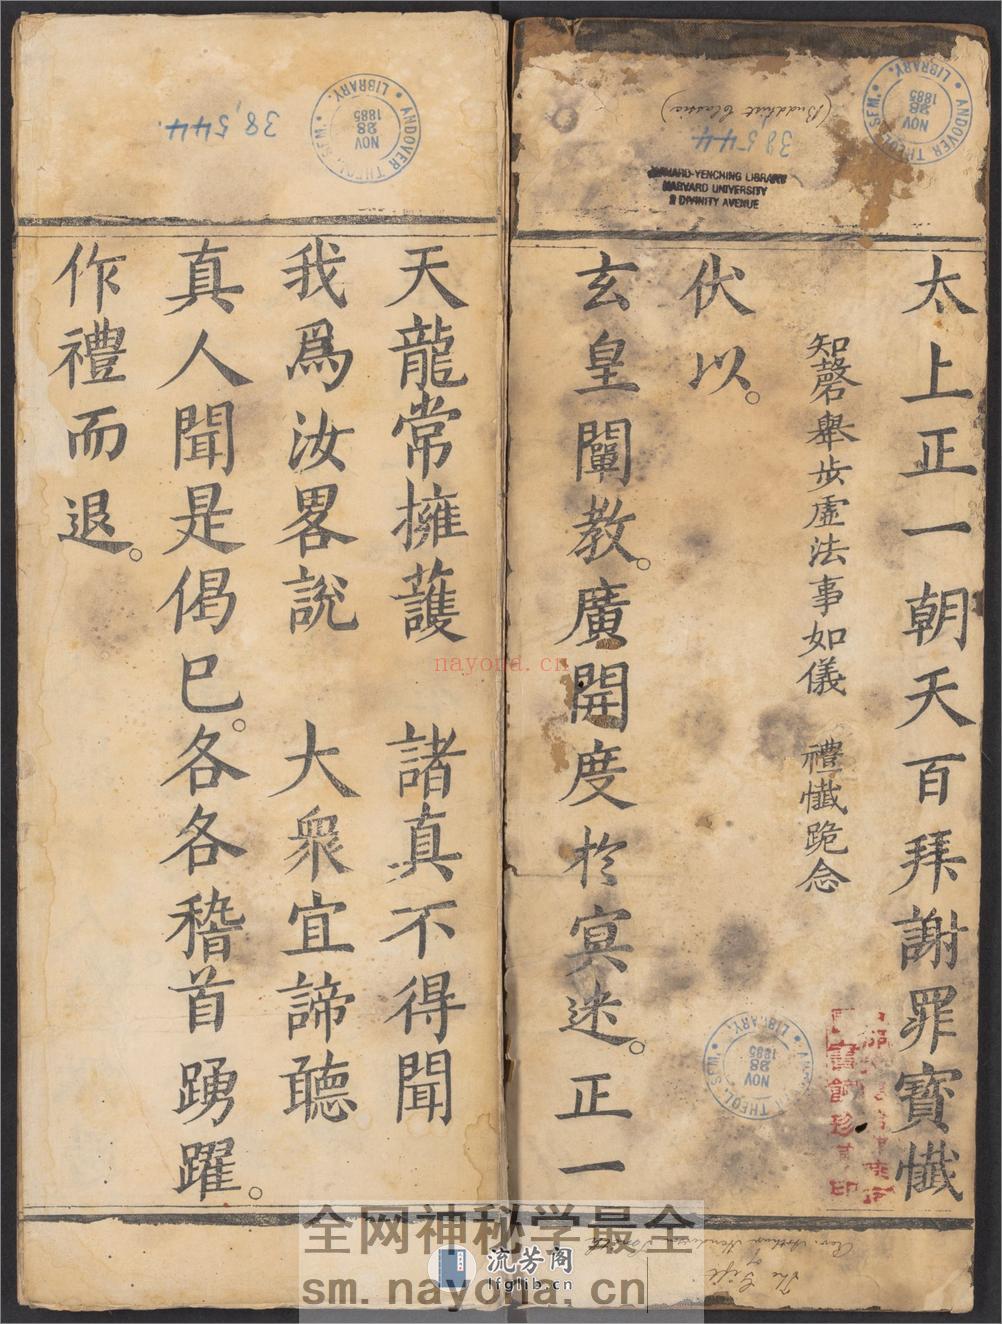 太上正一朝天百拜謝罪寶懺
知磬舉步虛法事如儀 禮懺跪念
伏以。
玄皇闡教。廣開度於冥迷。正一
天龍常擁護 諸真不得聞
我爲汝畧説 大衆宜諦聽
真人聞是偈已。各各稽首踴躍。
作禮而退。
ANDOVER THEOL. SEM. LIBRARY.
NOV 28 1885
38,544
(Buddhist Classics)
38544
ANDOVER THEOL. SEM. LIBRARY.
NOV 28 1885
HARVARD-YENCHING LIBRARY
HARVARD UNIVERSITY
2 DIVINITY AVENUE
ANDOVER THEOL. SEM. LIBRARY.
NOV 28 1885
The Gift of
Rev. Arthur Henderson Smith
nayona.cn
全网神秘学最全
流芳阁
lfglib.cn
sm.nayona.cn